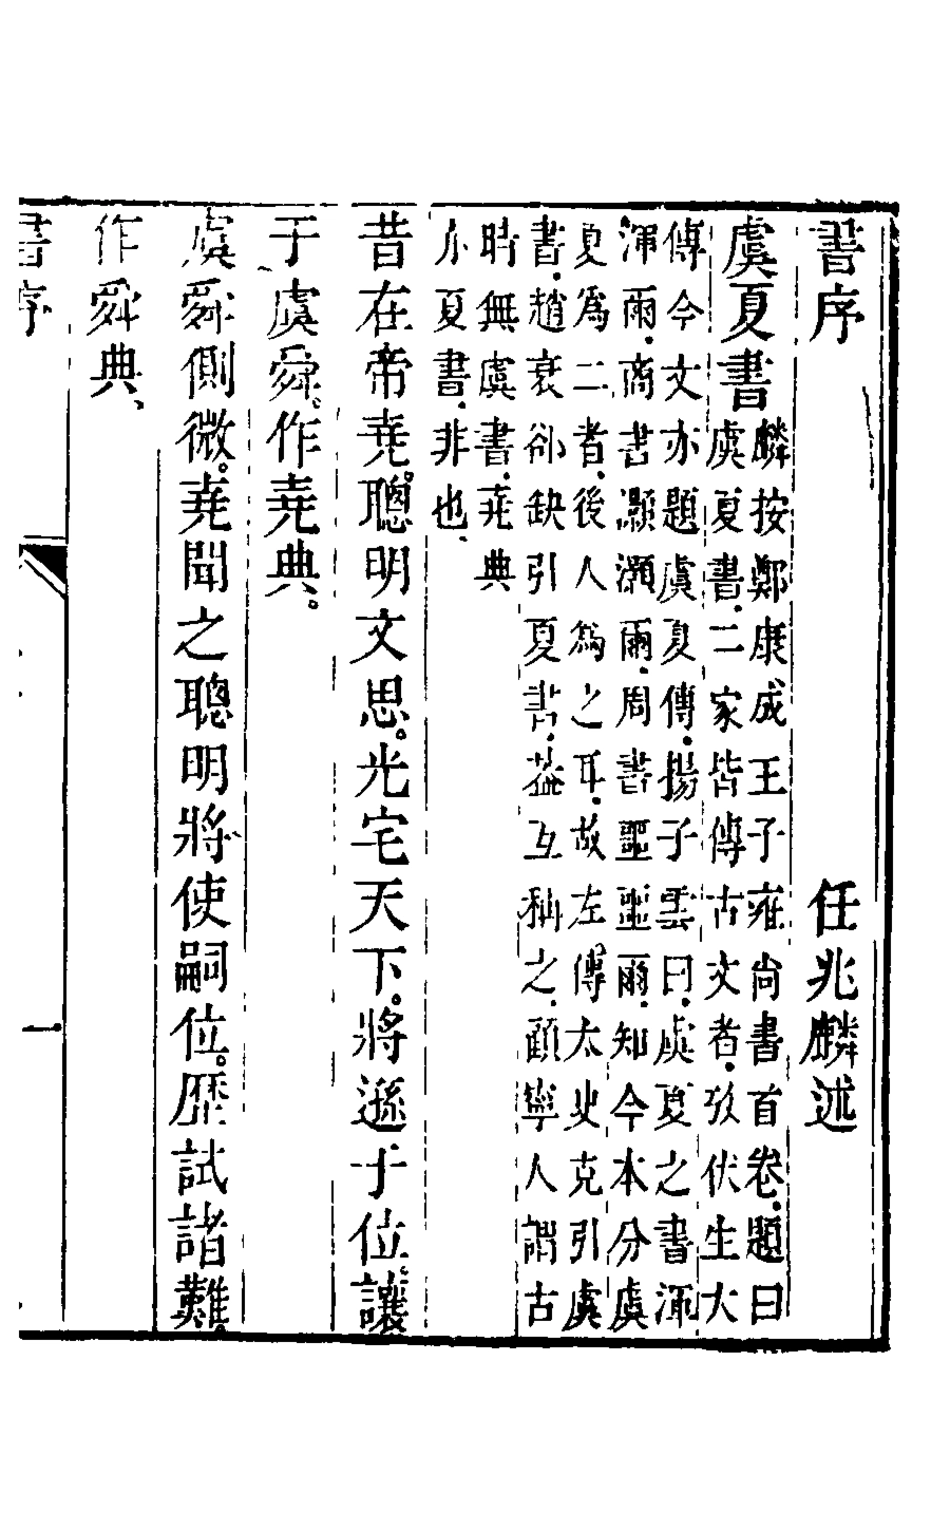 書序　任兆麟述
虞夏書
麟按鄭康成王子雍尚書首卷、題曰
虞夏書、二家皆傳古文者、攷伏生大
傳今文亦題虞夏傳、揚子雲曰、虞夏之書渾
渾爾、商書灝灝爾、周書噩噩爾、知今本分虞
夏爲二者、後人爲之耳、故左傳太史克引虞
書、趙衰郤缺引夏書、葢互稱之、顧寧人謂古
時無虞書、堯典
亦夏書、非也、
昔在帝堯。聰明文思。光宅天下。將遜于位。讓
于虞舜。作堯典。
虞舜側微。堯聞之聰明將使嗣位。歷試諸難。
作舜典、
書序　一